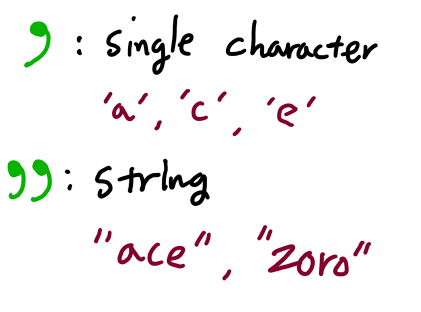 ' : single character
'a', 'c', 'e'
" : string
"ace", "zoro"